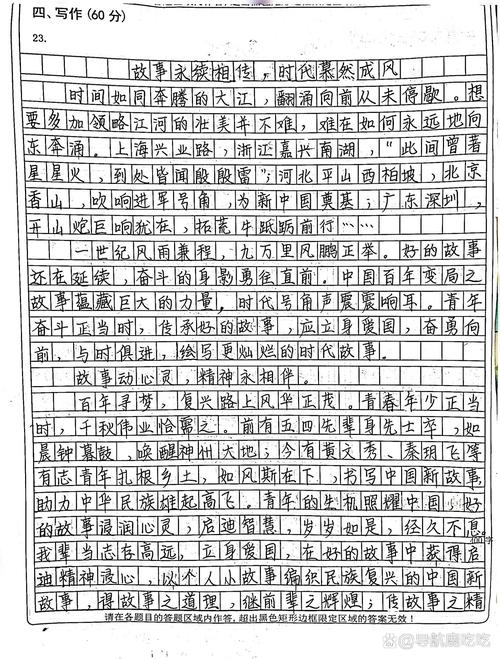 四、写作(60分)
23.
故事永续相传，时代慕然成风
时间如同奔腾的大江，翻涌向前从未停歇。想
要多加领略江河的壮美并不难，难在如何永远地向
东奔涌。上海兴业路，浙江嘉兴南湖，“此间曾著
星星火，到处皆闻殷殷雷”；河北平山西柏坡，北京
香山，吹响进军号角，为新中国奠基；广东深圳，
开山炮巨响犹在，拓荒牛踮跴前行……
一世纪风雨兼程，九万里风鹏正举。好的故事
还在延续，奋斗的身影勇往直前。中国百年变局之
故事蕴藏巨大的力量，时代号角声震震响耳。青年
奋斗正当时，传承好的故事，应立身爱国，奋勇向
前，与时俱进，绘写更灿烂的时代故事。
故事动心灵，精神永相伴。
百年寻梦，复兴路上风华正茂。青春年少正当
时，千秋伟业恰需之。前有五四先辈身先士卒，如
晨钟暮鼓，唤醒神州大地；今有黄文秀、秦玥飞等
有志青年扎根乡土，如风斯在下，书写中国新故事，
助力中华民族雄起高飞。青年的生机照耀中国，好
的故事浸润心灵，启迪智慧，岁岁如是，经久不息。
我辈当志存高远，立身爱国，在好的故事中获得启
迪精神浸心，以个人小故事编织民族复兴的中国新
故事，得故事之道理，继前辈之辉煌；传故事之精
请在各题目的答题区域内作答，超出黑色矩形边框限定区域的答案无效！
@导航鹿吃吃